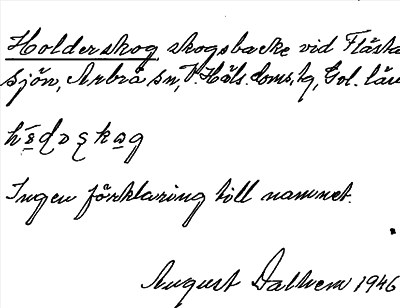 Holderskog, skogsbacke vid Flästa
sjön, Arbrå sn, V. Häls. doms. tg, Gvl. län
Ingen förklaring till namnet.
August Dalhem 1946